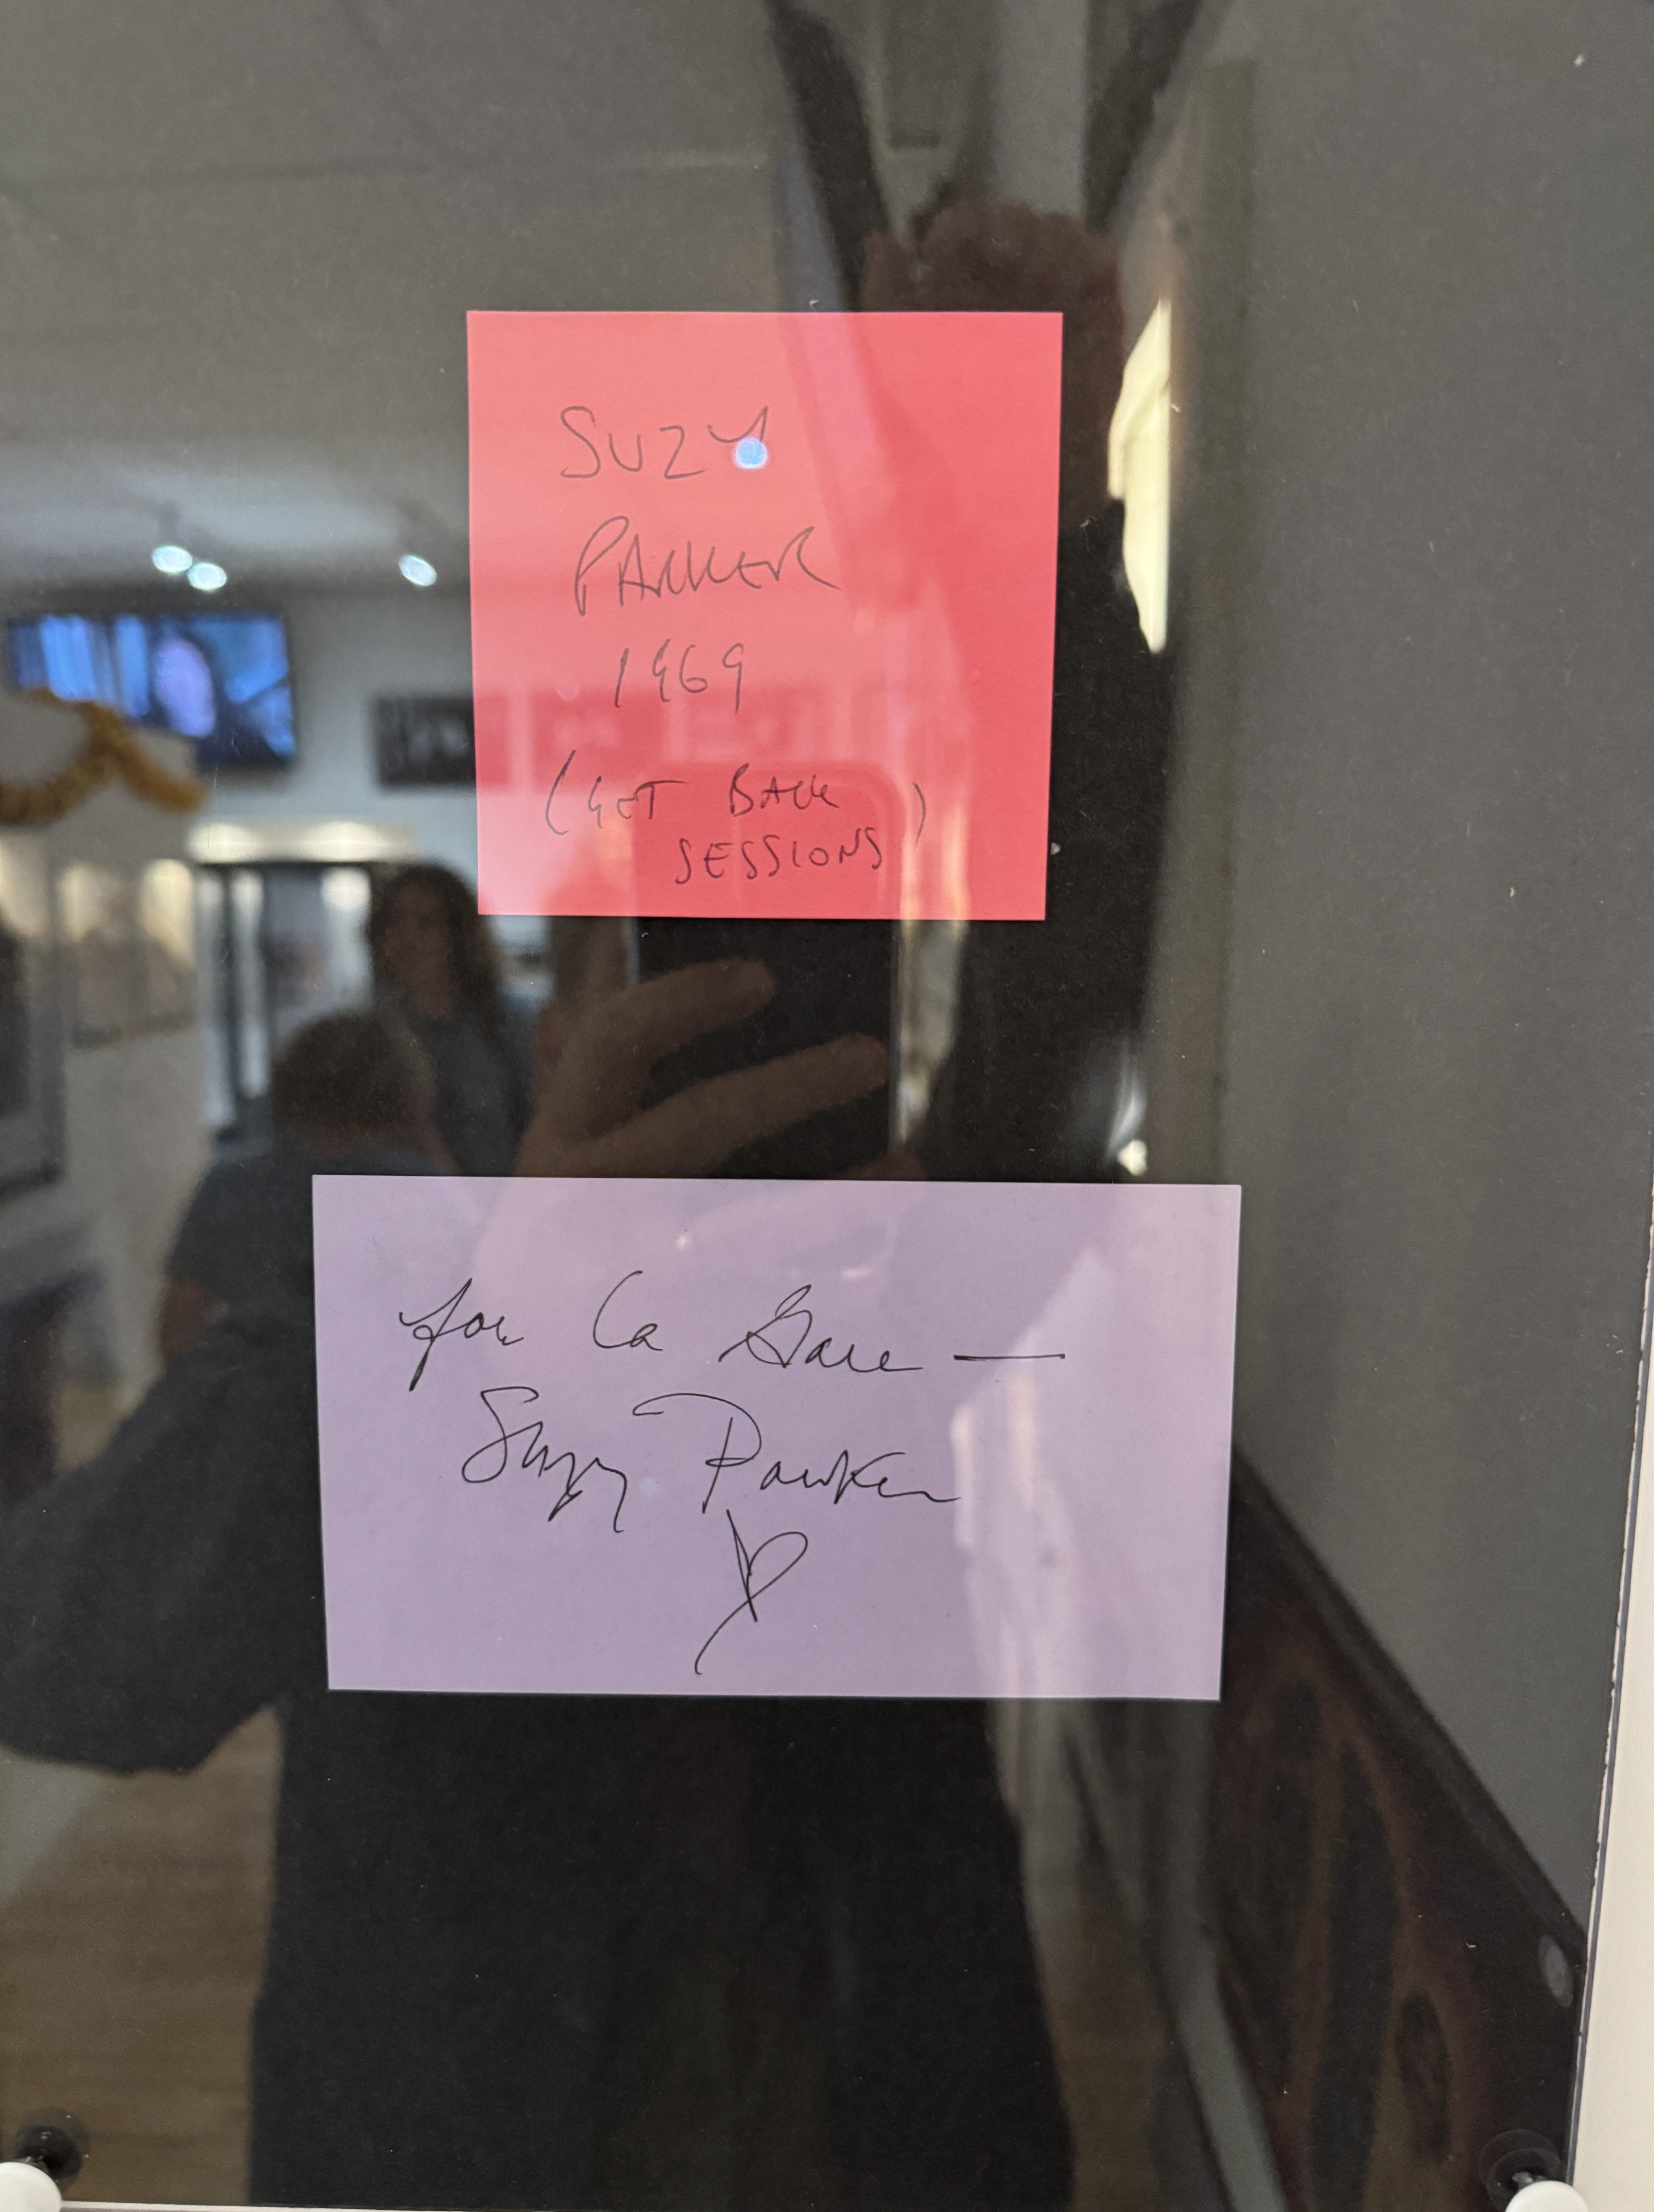 SUZY
PARKER
1969
(GET BACK
SESSIONS)
for La Gare —
Suzy Parker